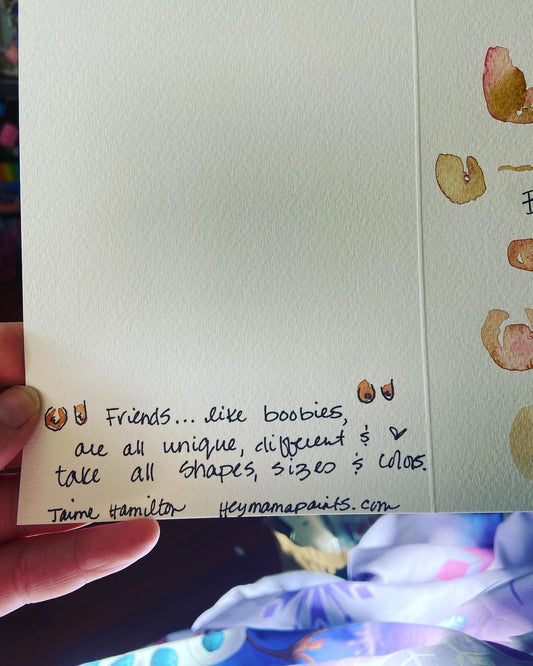 Friends... like boobies,
are all unique, different &
take all shapes, sizes & colors.
Jaime Hamilton Heymamapaints.com